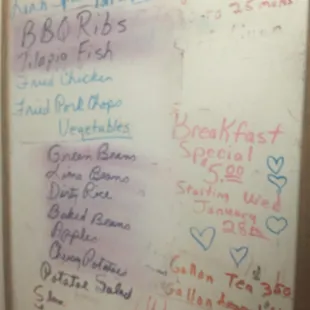 25 mins
BBQ Ribs
Tilapia Fish
Fried Chicken
Fried Pork Chops
Vegetables
Green Beans
Lima Beans
Dirty Rice
Baked Beans
Apples
Cheesy Potatoes
Potatoe Salad
Slaw
Breakfast
Special
$5.00
Starting Wed
January
28th
Gallon Tea 3.50
Gallon